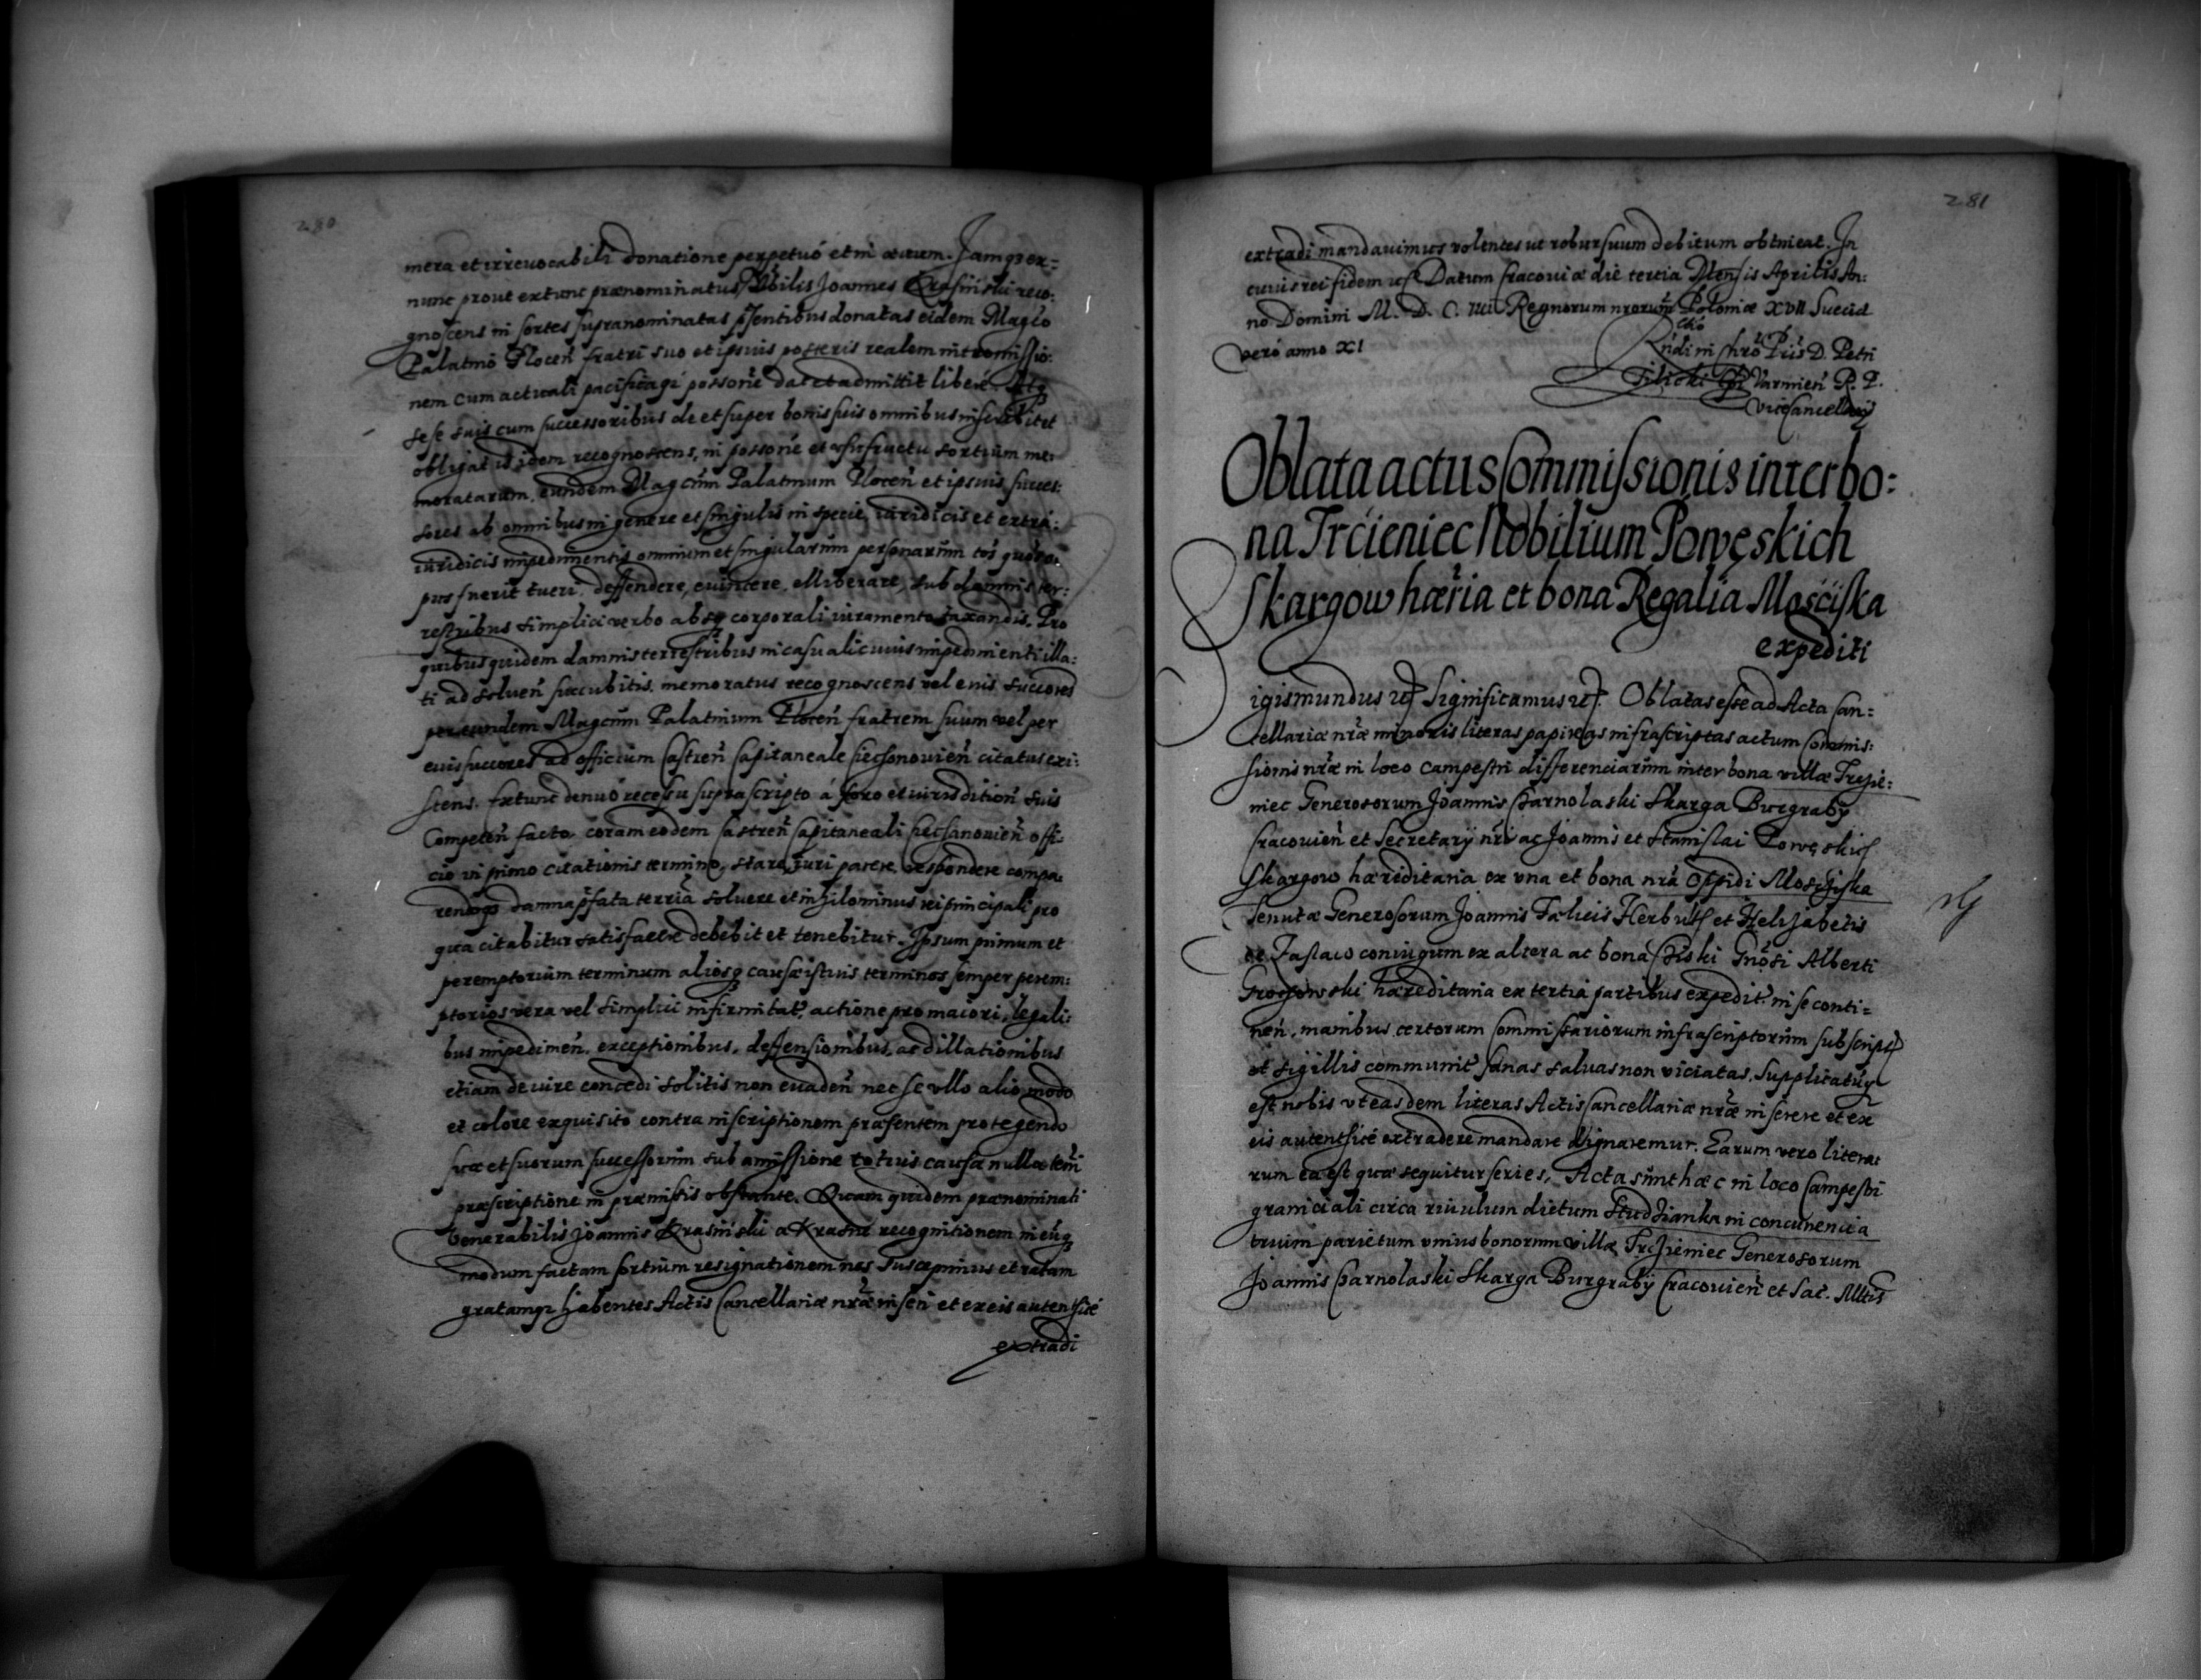 280
mera et irreuocabili donatione perpetuò et in æuum. Jamqȝ ex=
nunc prout extunc prænominatus Nobilis Joannes Krasiński reco:
gnoscens in sortes supranominatas pŝentibus donatas eidem Magco
Palatino Plocen̄ fratri suo et ipsius posteris realem intromissio:
nem cum actuali pacificaqȝ possone dat et admittit liberè. Atqȝ
sese suis cum successoribus de et super bonis suis omnibus inscribit et
obligat is idem recognoscens, in possone et vsufructu sortium me:
moratarum, eundem Magcum Palatinum Plocen̄ et ipsius succes:
sores ab omnibus in genere et singulis in specie, iuridicis et extra:
iuridicis impedimentis omnium et singularum personarum toẗ quoẗ o:
pus fuerit tueri, deffendere, euincere, elliberare, sub damnis ter:
restribus simplici verbo absqȝ corporali iuramento taxandis. Pro
quibus quidem damnis terrestribus in casu alicuius impedimenti illa:
ti ad soluen̄ succubitis, memoratus recognoscens vel eius succores
per eundem Magcum Palatinum Plocen̄ fratrem suum vel per
eius succores ad officium Castren̄ Capitaneale Ciechanouien̄ citatus exi:
stens. Extunc denuò recessu suprascripto à foro et iurisdition̄ suis
Competen̄ facto coram eodem Castren̄ Capitaneali Ciechanouien̄ offi:
cio in primo citationis termino, stare, iuri parere, respondere compa:
rendoqȝ damna pŝfata terria soluere et nihilominus rei principali pro
qua citabitur satisfacere debebit et tenebitur. Ipsum primum et
peremptorium terminum aliosqȝ causæ istius terminos semper perem:
ptorios vera vel simplici infirmitate, actione pro maiori, legali:
bus impedimen̄, exceptionibus, deffensionibus, ac dillationibus
etiam de iure concedi solitis non euaden̄ nec se vllo alio modo
et colore exquisito contra inscriptionem præsentem protegendo
suæ et suorum successorum sub amissione totius causæ nulla terri
præscriptione in præmissis obstante. Quam quidem prænominati
Venerabilis Joannis Krasiński a Krasne recognitionem in eūqȝ
modum factam sortium resignationem nos suscepimus et ratam
gratamqȝ habentes Actis Cancellariæ nræ inseri et ex eis autenthicè
extradi
281
extradi mandauimus volentes ut robur suum debitum obtineat. In
cuius rei fidem etc. Datum Cracouiæ die tertia Mensis Aprilis An:
no Domini M. D. C. IIII. Regnorum nrorum Poloniæ XVII Sueciæ
verò anno XI
Rndi in Chrō Pris D. Petri
Tilicki Epi Varmien̄ R. P.
ViceCancellarij
Oblata actus Commissionis inter bo:
na Trcieniec Nobilium Powęskich
Skargow hæria et bona Regalia Mościska
expediti
Sigismundus etc. Significamus etc. Oblatas esse ad Acta Can=
cellariæ nræ minoris literas papireas infrascriptas actum Commis:
sionis nræ in loco campestri differenciarum inter bona villæ Trcie:
niec Generosorum Joannis Czarnolaski Skarga Burgrabÿ
Cracouien̄ et Secretarÿ nri ac Joannis et Stanislai Powęskich
Skargow hæreditaria ex vna et bona nra Oppidi Mościska
Tenutæ Generosorum Joannis Fælicis Herburth et Helizabetis
de Zaslaw coniugum ex altera ac bona Cziski Gnosi Alberti
Grochowski hæreditaria ex tertia partibus expedit in se conti=
nen̄, manibus certorum Commissariorum infrascriptorum subscript
et sigillis communit sanas saluas non viciatas. Supplicatūqȝ
est nobis vt easdem literas Actis Cancellariæ nræ inserere et ex
eis autenthicè extradere mandare dignaremur. Earum vero litera:
rum ea est quæ sequitur series. Acta sunt hæc in loco Campestri
graniciali circa riuulum dictum Studzianka in concurrencia
trium parietum vnius bonorum villæ Trcieniec Generosorum
Joannis Czarnolaski Skarga Burgrabÿ Cracouien̄ et Sac. Mttis